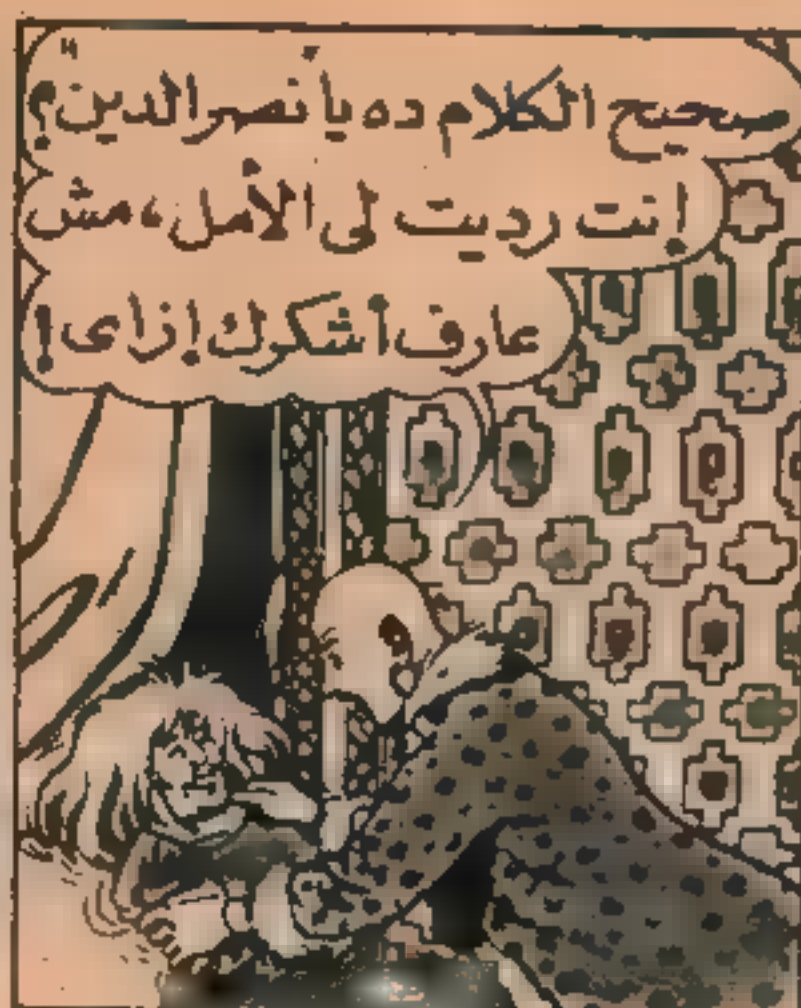 صحيح الكلام ده يا نصر الدين؟
إنت رديت لى الأمل، مش
عارف أشكرك إزاى!